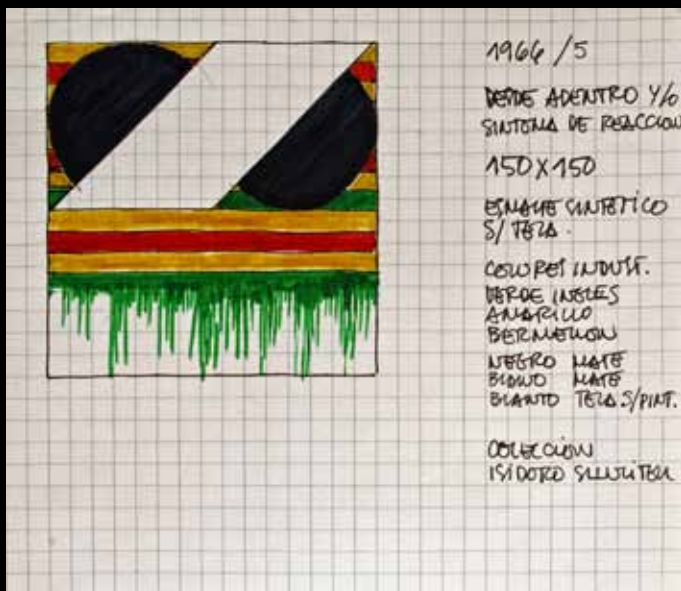 1966/5
DESDE ADENTRO Y/O
SINTOMA DE REACCION
150X150
ESMALTE SINTETICO
S/ TELA.
COLORES INDUST.
VERDE INGLES
AMARILLO
BERMELLON
NEGRO MATE
BLANCO MATE
BLANCO TELA S/PINT.
COLECCIÓN
ISIDORO